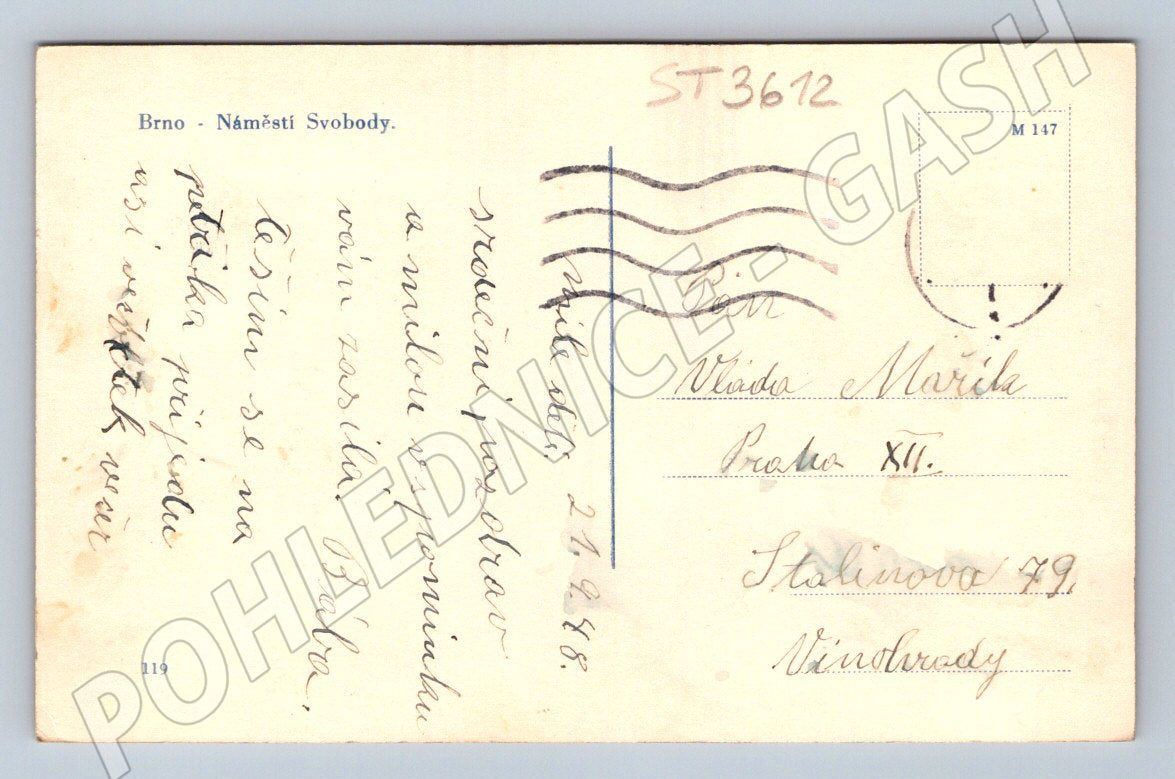 ST3612
Brno - Náměstí Svobody.
M 147
milé děti. 21.9.48.
srdečný pozdrav
a milou vspomínku
vám zasílá Bába.
těším se na
petříka přijedu
asi večer
Pan
Vláďa Mařík
Praha XII.
Stalinova 79.
Vinohrady
119
POHLEDNICE - GASH